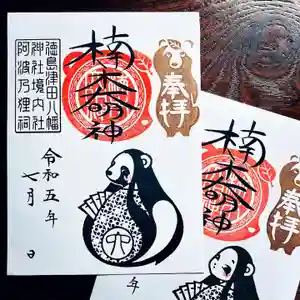 奉拝
楠
神
徳島津田八幡
神社境内社
阿波乃狸祠
令和五年
七月 日
六
奉拝
楠
神
年